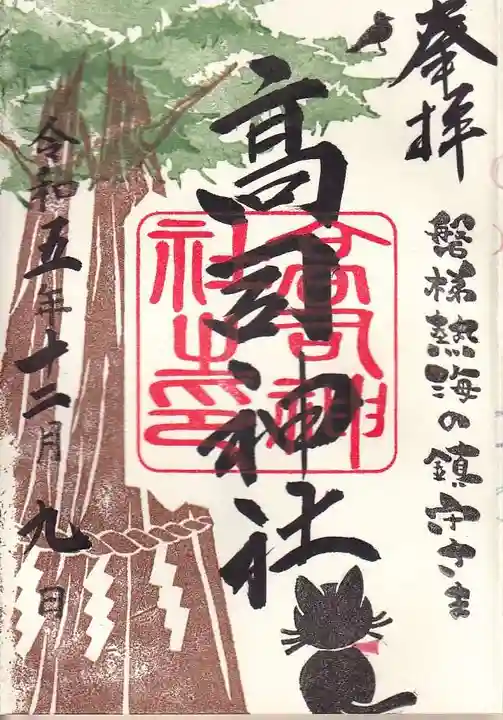 奉拝
磐梯熱海の鎮守さま
高司神社
高司神社之印
令和五年十二月九日